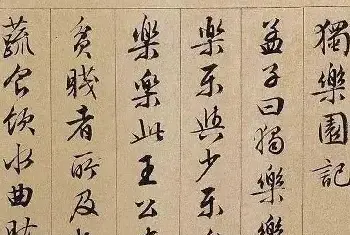 獨樂園記
孟子曰獨樂樂
樂樂與少樂
樂樂此王公
貧賤者所及
蔬食飲水曲肱